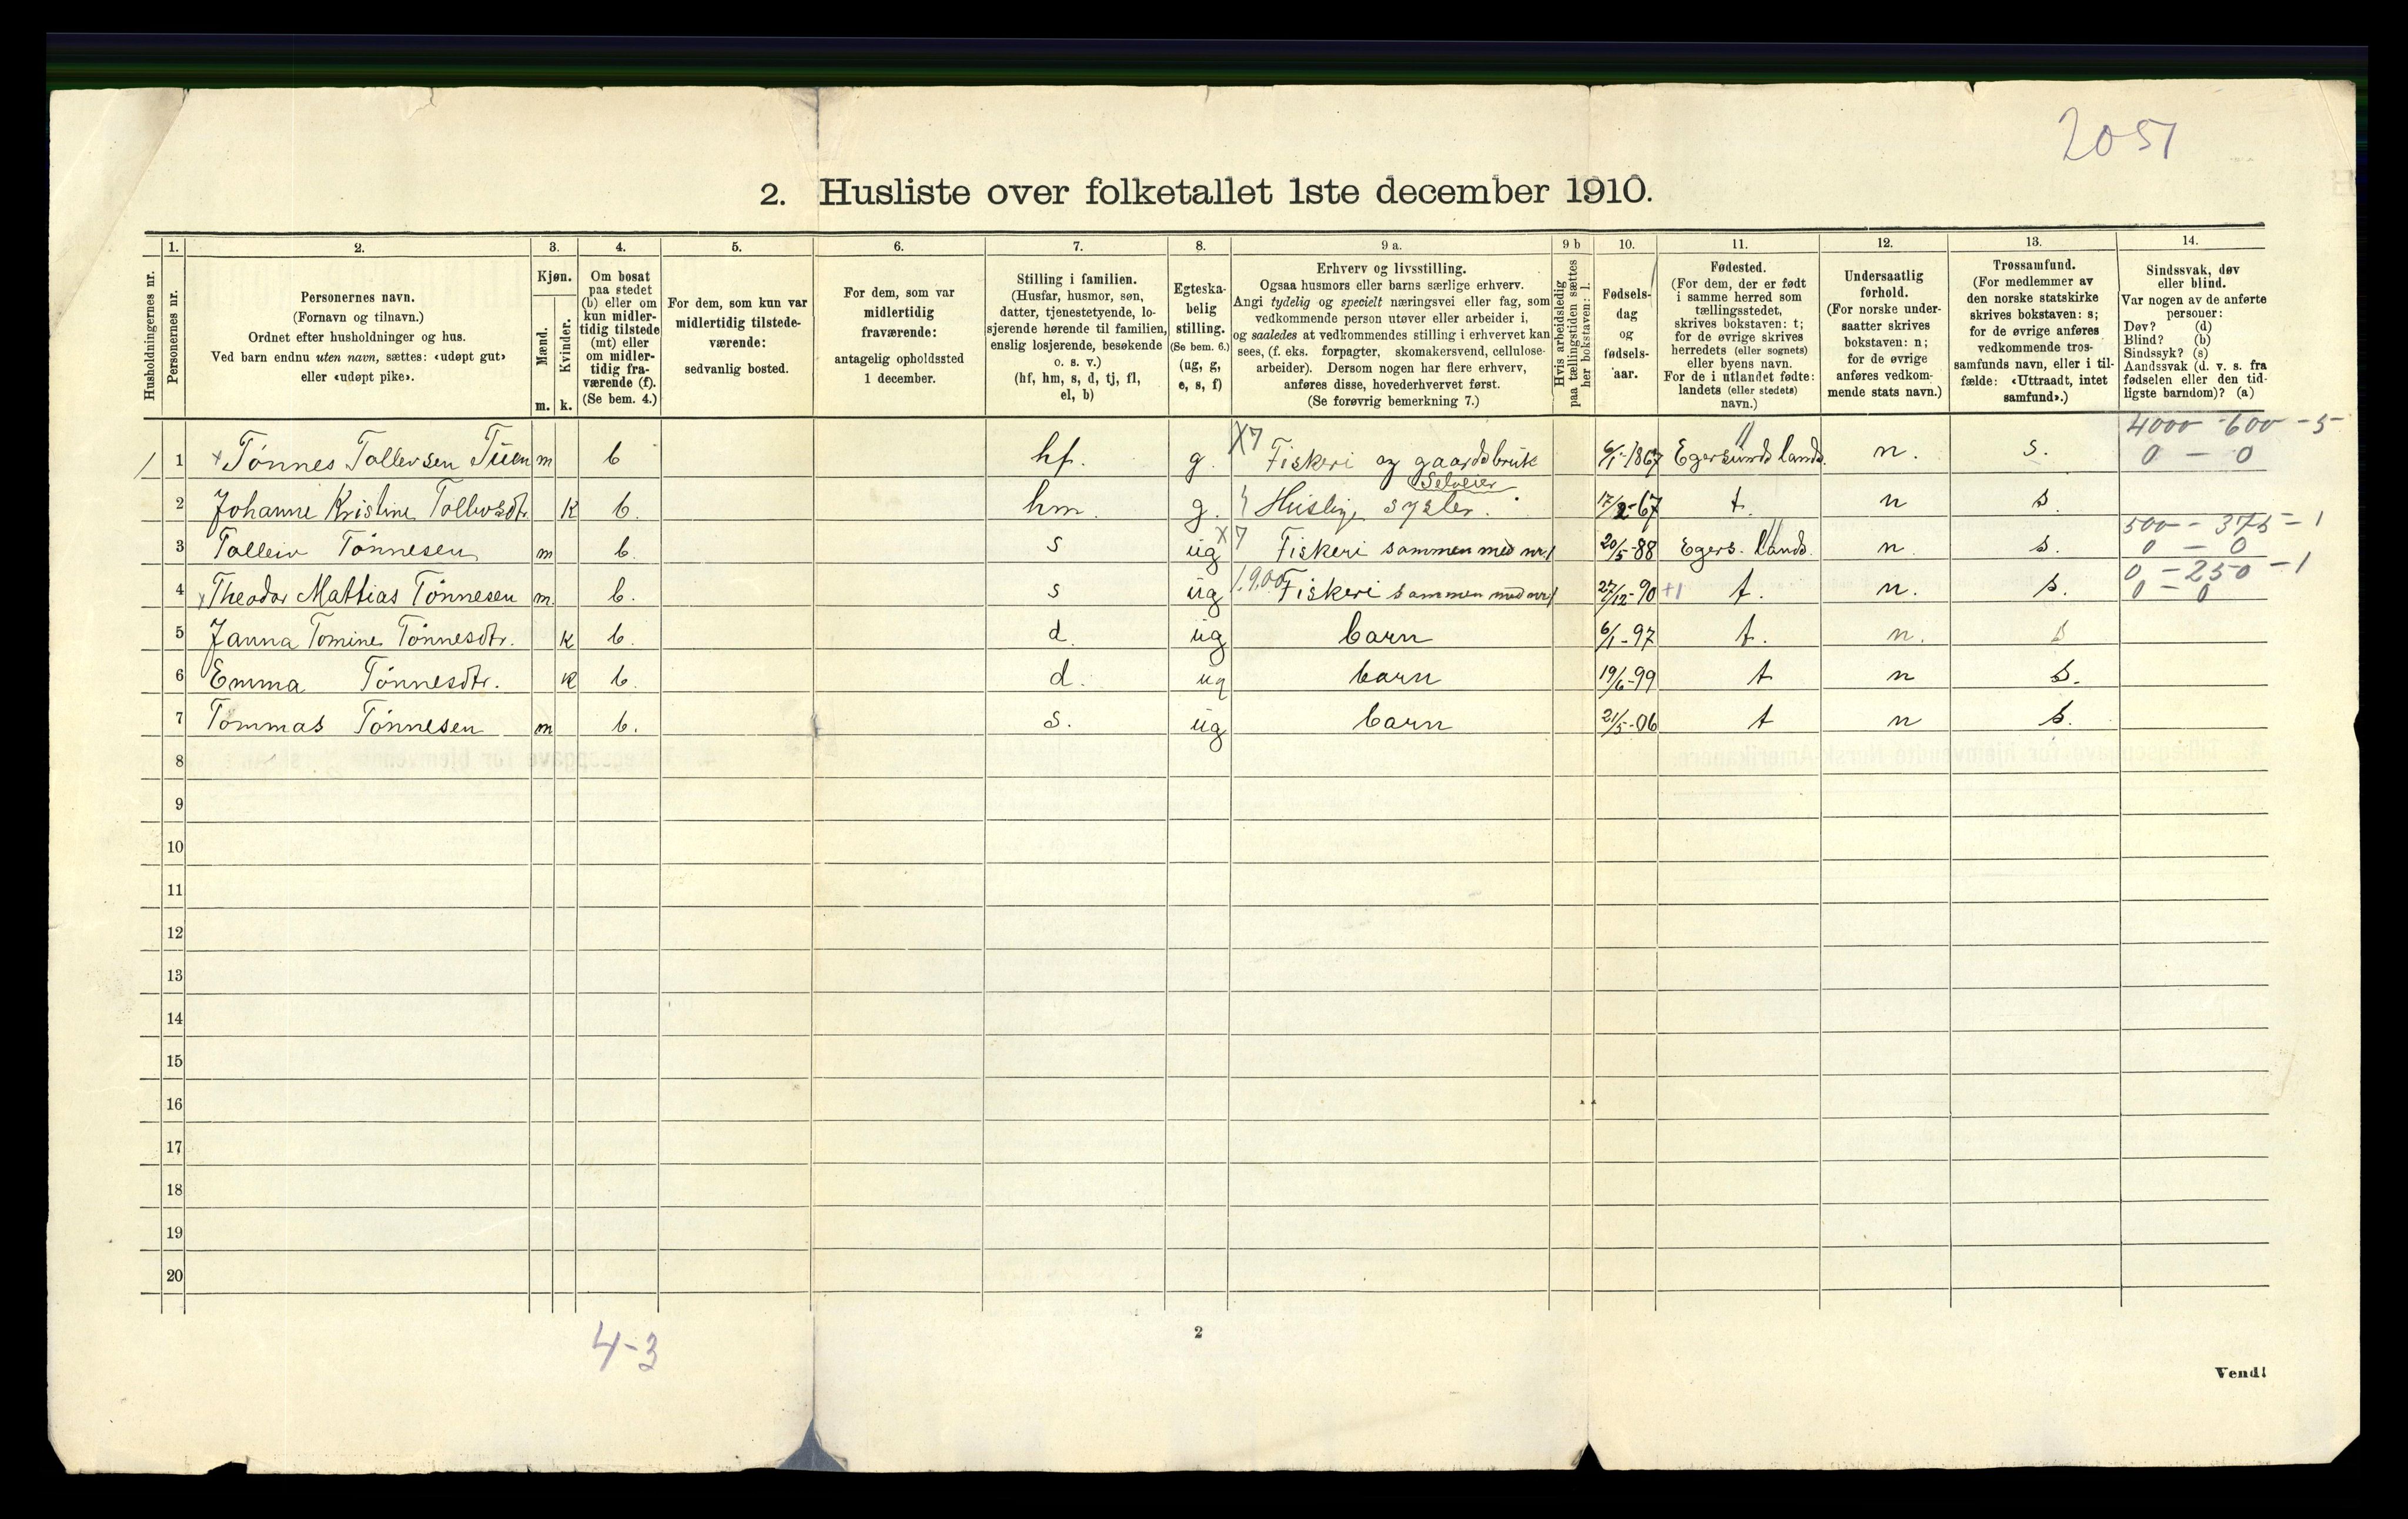 2051
2. Husliste over folketallet 1ste december 1910.
Husholdningernes nr.
1. Personernes nr.
2. Personernes navn. (Fornavn og tilnavn.) Ordnet efter husholdninger og hus. Ved barn endnu uten navn, sættes: «udøpt gut» eller «udøpt pike».
3. Kjøn. Mænd. m. Kvinder. k.
4. Om bosat paa stedet (b) eller om kun midlertidig tilstede (mt) eller om midlertidig fraværende (f). (Se bem. 4.)
5. For dem, som kun var midlertidig tilstedeværende: sedvanlig bosted.
6. For dem, som var midlertidig fraværende: antagelig opholdssted 1 december.
7. Stilling i familien. (Husfar, husmor, søn, datter, tjenestetyende, losjerende hørende til familien, enslig losjerende, besøkende o. s. v.) (hf, hm, s, d, tj, fl, el, b)
8. Egteskabelig stilling. (Se bem. 6.) (ug, g, e, s, f)
9 a. Erhverv og livsstilling. Ogsaa husmors eller barns særlige erhverv. Angi tydelig og specielt næringsvei eller fag, som vedkommende person utøver eller arbeider i, og saaledes at vedkommendes stilling i erhvervet kan sees, (f. eks. forpagter, skomakersvend, cellulosearbeider). Dersom nogen har flere erhverv, anføres disse, hovederhvervet først. (Se forøvrig bemerkning 7.)
9 b Hvis arbeidsledig paa tællingstiden sættes her bokstaven: l.
10. Fødselsdag og fødselsaar.
11. Fødested. (For dem, der er født i samme herred som tællingsstedet, skrives bokstaven: t; for de øvrige skrives herredets (eller sognets) eller byens navn. For de i utlandet fødte: landets (eller stedets) navn.)
12. Undersaatlig forhold. (For norske undersaatter skrives bokstaven: n; for de øvrige anføres vedkommende stats navn.)
13. Trossamfund. (For medlemmer av den norske statskirke skrives bokstaven: s; for de øvrige anføres vedkommende trossamfunds navn, eller i tilfælde: «Uttraadt, intet samfund».)
14. Sindssvak, døv eller blind. Var nogen av de anførte personer: Døv? (d) Blind? (b) Sindssyk? (s) Aandssvak (d. v. s. fra fødselen eller den tidligste barndom)? (a)
4000 - 600 - 5
1 Tønnes Tollevsen m b hf. g. X7 Fiskeri og gaardsbruk 6/1-1867 Egersunds lands. n. s. 0 - 0
Selveier
2 Johanne Kristine Tollevsdtr. k b. hm. g. Huslige sysler. 17/2-67 t. n s.
500 - 375 - 1
3 Tolleiv Tønnesen m b. s ug X7 Fiskeri sammen med nr 1 20/5-88 Egers. lands. n. s. 0 - 0
0 - 250 - 1
4 Theodor Mattias Tønnesen m. b. s ug 1.900 Fiskeri sammen med nr 1 27/12-90 +1 t. n. s. 0 - 0
5 Janna Tomine Tønnesdtr. k b. d. ug barn 6/1-97 t. n. s
6 Emma Tønnesdtr. k b. d. ug barn 19/6-99 t n s.
7 Tommas Tønnesen m b. s. ug barn 21/5-06 t n s.
8
9
10
11
12
13
14
15
16
17
18
19
20
4-3
2
Vend!